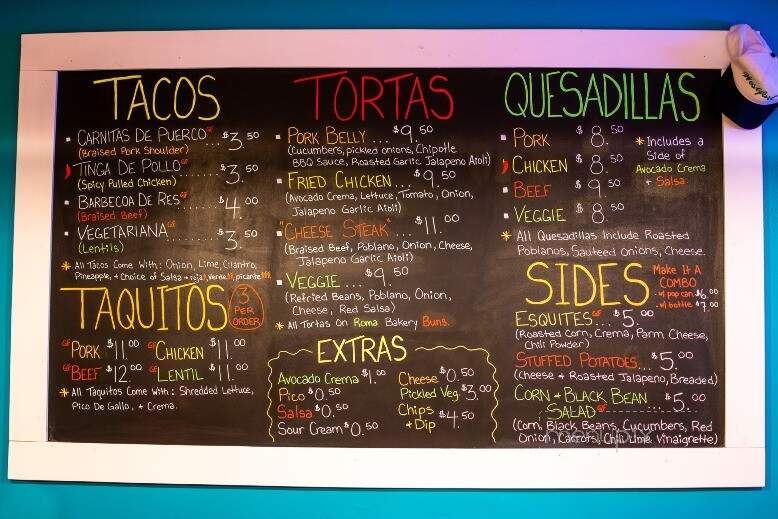 TACOS
CARNITAS DE PUERCO GF ... $3.50
(Braised Pork Shoulder)
TINGA DE POLLO GF ... $3.50
(Spicy Pulled Chicken)
BARBECOA DE RES GF ... $4.00
(Braised Beef)
VEGETARIANA GF ... $3.50
(Lentils)
* All Tacos Come With: Onion, Lime, Cilantro,
Pineapple, + Choice of Salsa - roja, verde, picante
TAQUITOS 3 PER ORDER
GF PORK $11.00 GF CHICKEN $11.00
GF BEEF $12.00 GF LENTIL $11.00
* All Taquitos Come With: Shredded Lettuce,
Pico De Gallo, + Crema.
TORTAS
PORK BELLY... $9.50
(Cucumbers, pickled onions, Chipotle
BBQ Sauce, Roasted Garlic Jalapeno Aioli)
FRIED CHICKEN... $9.50
(Avocado Crema, Lettuce, Tomato, Onion,
Jalapeno Garlic Aioli)
"CHEESE STEAK"... $11.00
(Braised Beef, Poblano, Onion, Cheese,
Jalapeno Garlic Aioli)
VEGGIE... $9.50
(Refried Beans, Poblano, Onion,
Cheese, Red Salsa)
* All Tortas On Roma Bakery Buns.
EXTRAS
Avocado Crema $1.00
Pico $0.50
Salsa $0.50
Sour Cream $0.50
Cheese $0.50
Pickled Veg. $3.00
Chips
+ Dip $4.50
QUESADILLAS
PORK $8.50
CHICKEN $8.50
BEEF $9.50
VEGGIE $8.50
* Includes a
Side of
Avocado Crema
+ Salsa.
* All Quesadillas Include Roasted
Poblanos, Sauteed Onions, Cheese.
SIDES
Make It A
COMBO
w/ pop can $6.00
w/ bottle $7.00
ESQUITES... $5.00
(Roasted Corn, Crema, Parm Cheese,
Chili Powder)
STUFFED POTATOES... $5.00
(Cheese + Roasted Jalapeño, Breaded)
CORN + BLACK BEAN
SALAD GF ... $5.00
(Corn, Black Beans, Cucumbers, Red
Onion, Carrots, Chili Lime Vinaigrette)